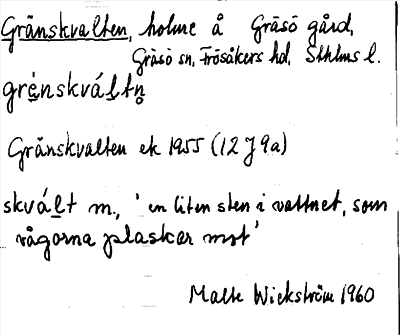 Gränskvalten, holme å Gräsö gård,
Gräsö sn, Frösåkers hd, Sthlms l.
grä́nskváltn̥
Gränskvalten ek 1955 (12 J 9a)
skvált m., ' en liten sten i vattnet, som
vågorna plaskar mot'
Malte Wickström 1960